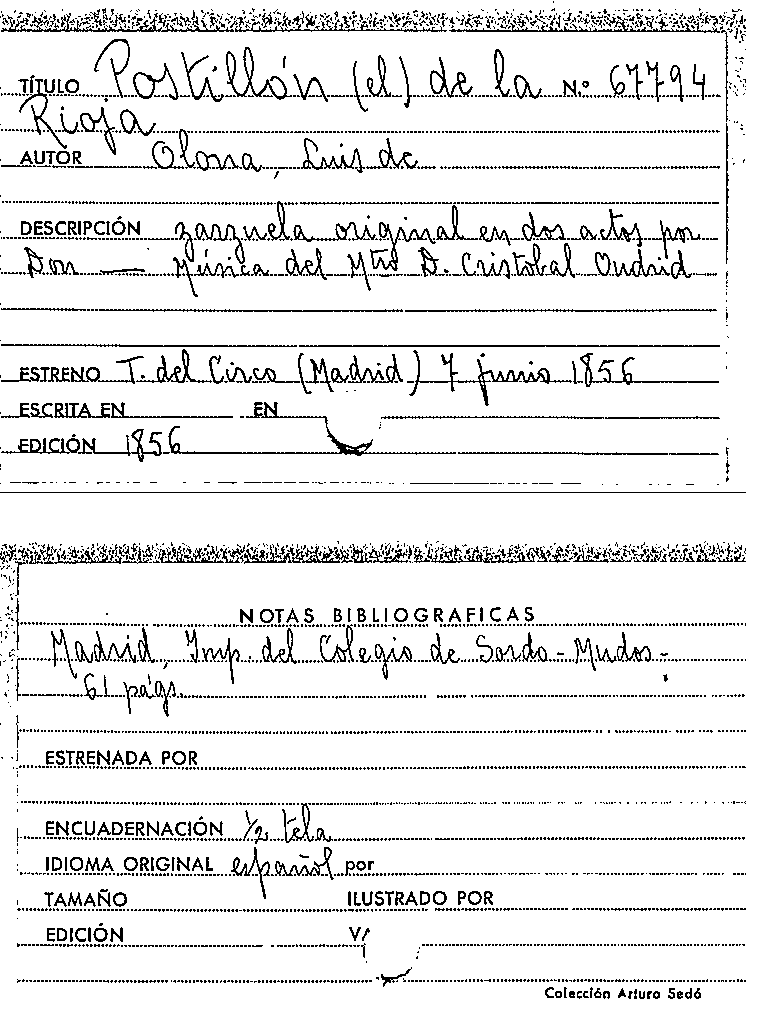 TÍTULO Postillón (el) de la N.º 67794
Rioja
AUTOR Olona, Luis de
DESCRIPCIÓN zarzuela original en dos actos por
Don — Música del Mtro D. Cristobal Oudrid
ESTRENO T. del Circo (Madrid) 7 junio 1856
ESCRITA EN EN
EDICIÓN 1856
NOTAS BIBLIOGRAFICAS
Madrid, Imp. del Colegio de Sordo-Mudos-
61 págs.
ESTRENADA POR
ENCUADERNACIÓN 1/2 tela
IDIOMA ORIGINAL español por
TAMAÑO ILUSTRADO POR
EDICIÓN V/
Colección Arturo Sedó